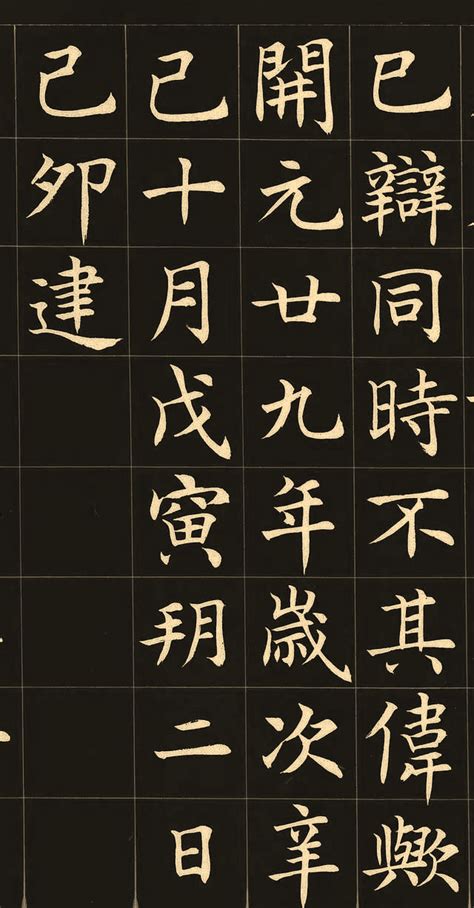 已辯同時不其偉歟
開元廿九年歲次辛
巳十月戊寅朔二日
己卯建